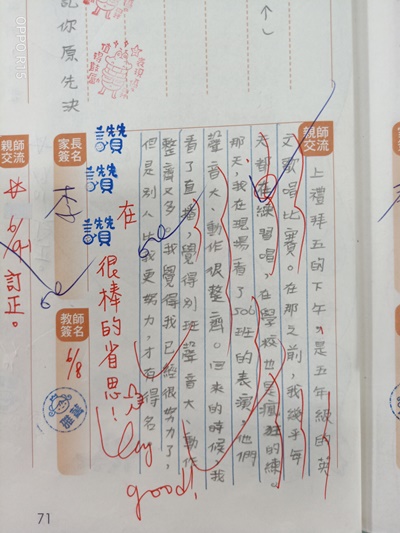 記你原先決
親師交流
上禮拜五的下午，是五年級的英
文歌唱比賽。在那之前，我幾乎每
天都在練習唱，在學校也是瘋狂的練。
那天，我在現場看了506班的表演，他們
聲音大、動作很整齊。回來的時候，我
看了直播，覺得別班聲音大、動作
整齊又多，我覺得我已經很努力了，
但是別人比我更努力，才有得名
讚
讚
讚
在
很棒的省思！
Very
good!
家長簽名
李
教師簽名
6/8
親師交流
訂正。
71
OPPO R15